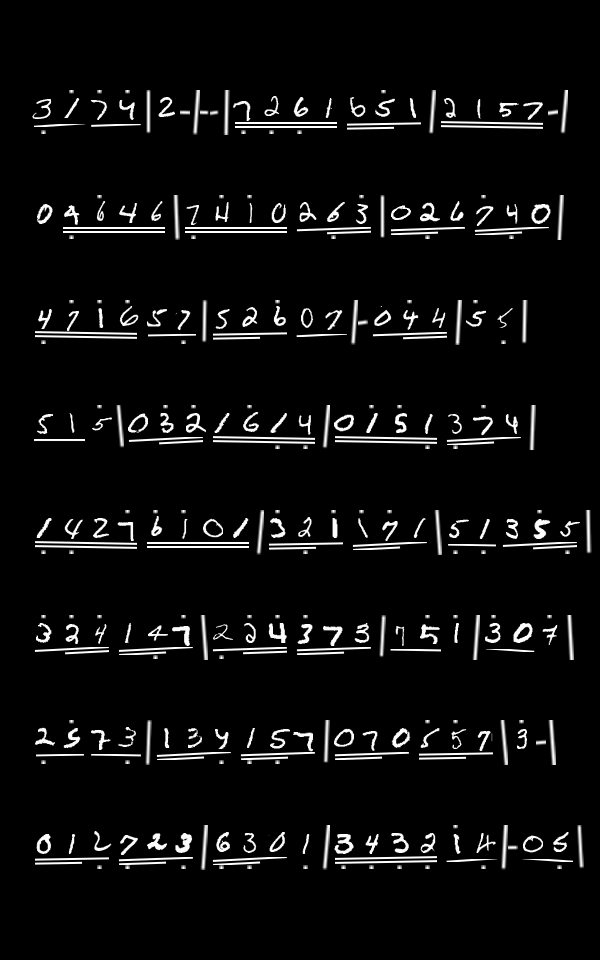 3174|2-|--|7261651|2157-|
04646|7410263|026740|
471657|52607|-044|55|
515|0321614|0151374|
14276101|321171|51355|
324147|224373|751|307|
2573|134157|070557|3-|
012723|6301|343214|-05|